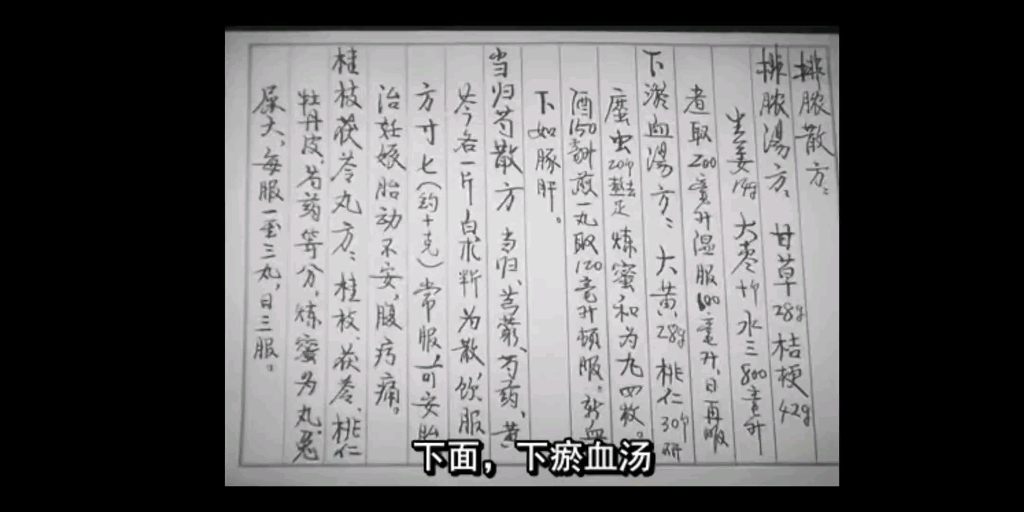 排脓散方：
排脓汤方：甘草28g 桔梗42g
生姜14g 大枣十个 水三800毫升
煮取200毫升温服100毫升，日再服
下淤血汤方：大黄28g 桃仁30个研
䗪虫20个熬去足 炼蜜和为九四枚。
酒150毫升煎一丸取120毫升顿服。新血
下如豚肝。
当归芍散方 当归、芎藭、芍药、黄
芩各一斤 白术 半斤 为散，饮服
方寸匕（约十克）常服，可安胎
治妊娠胎动不安，腹疠痛。
桂枝茯苓丸方：桂枝、茯苓、桃仁
牡丹皮、芍药等分，炼蜜为丸，兔
屎大，每服一至三丸，日三服。
下面，下瘀血汤